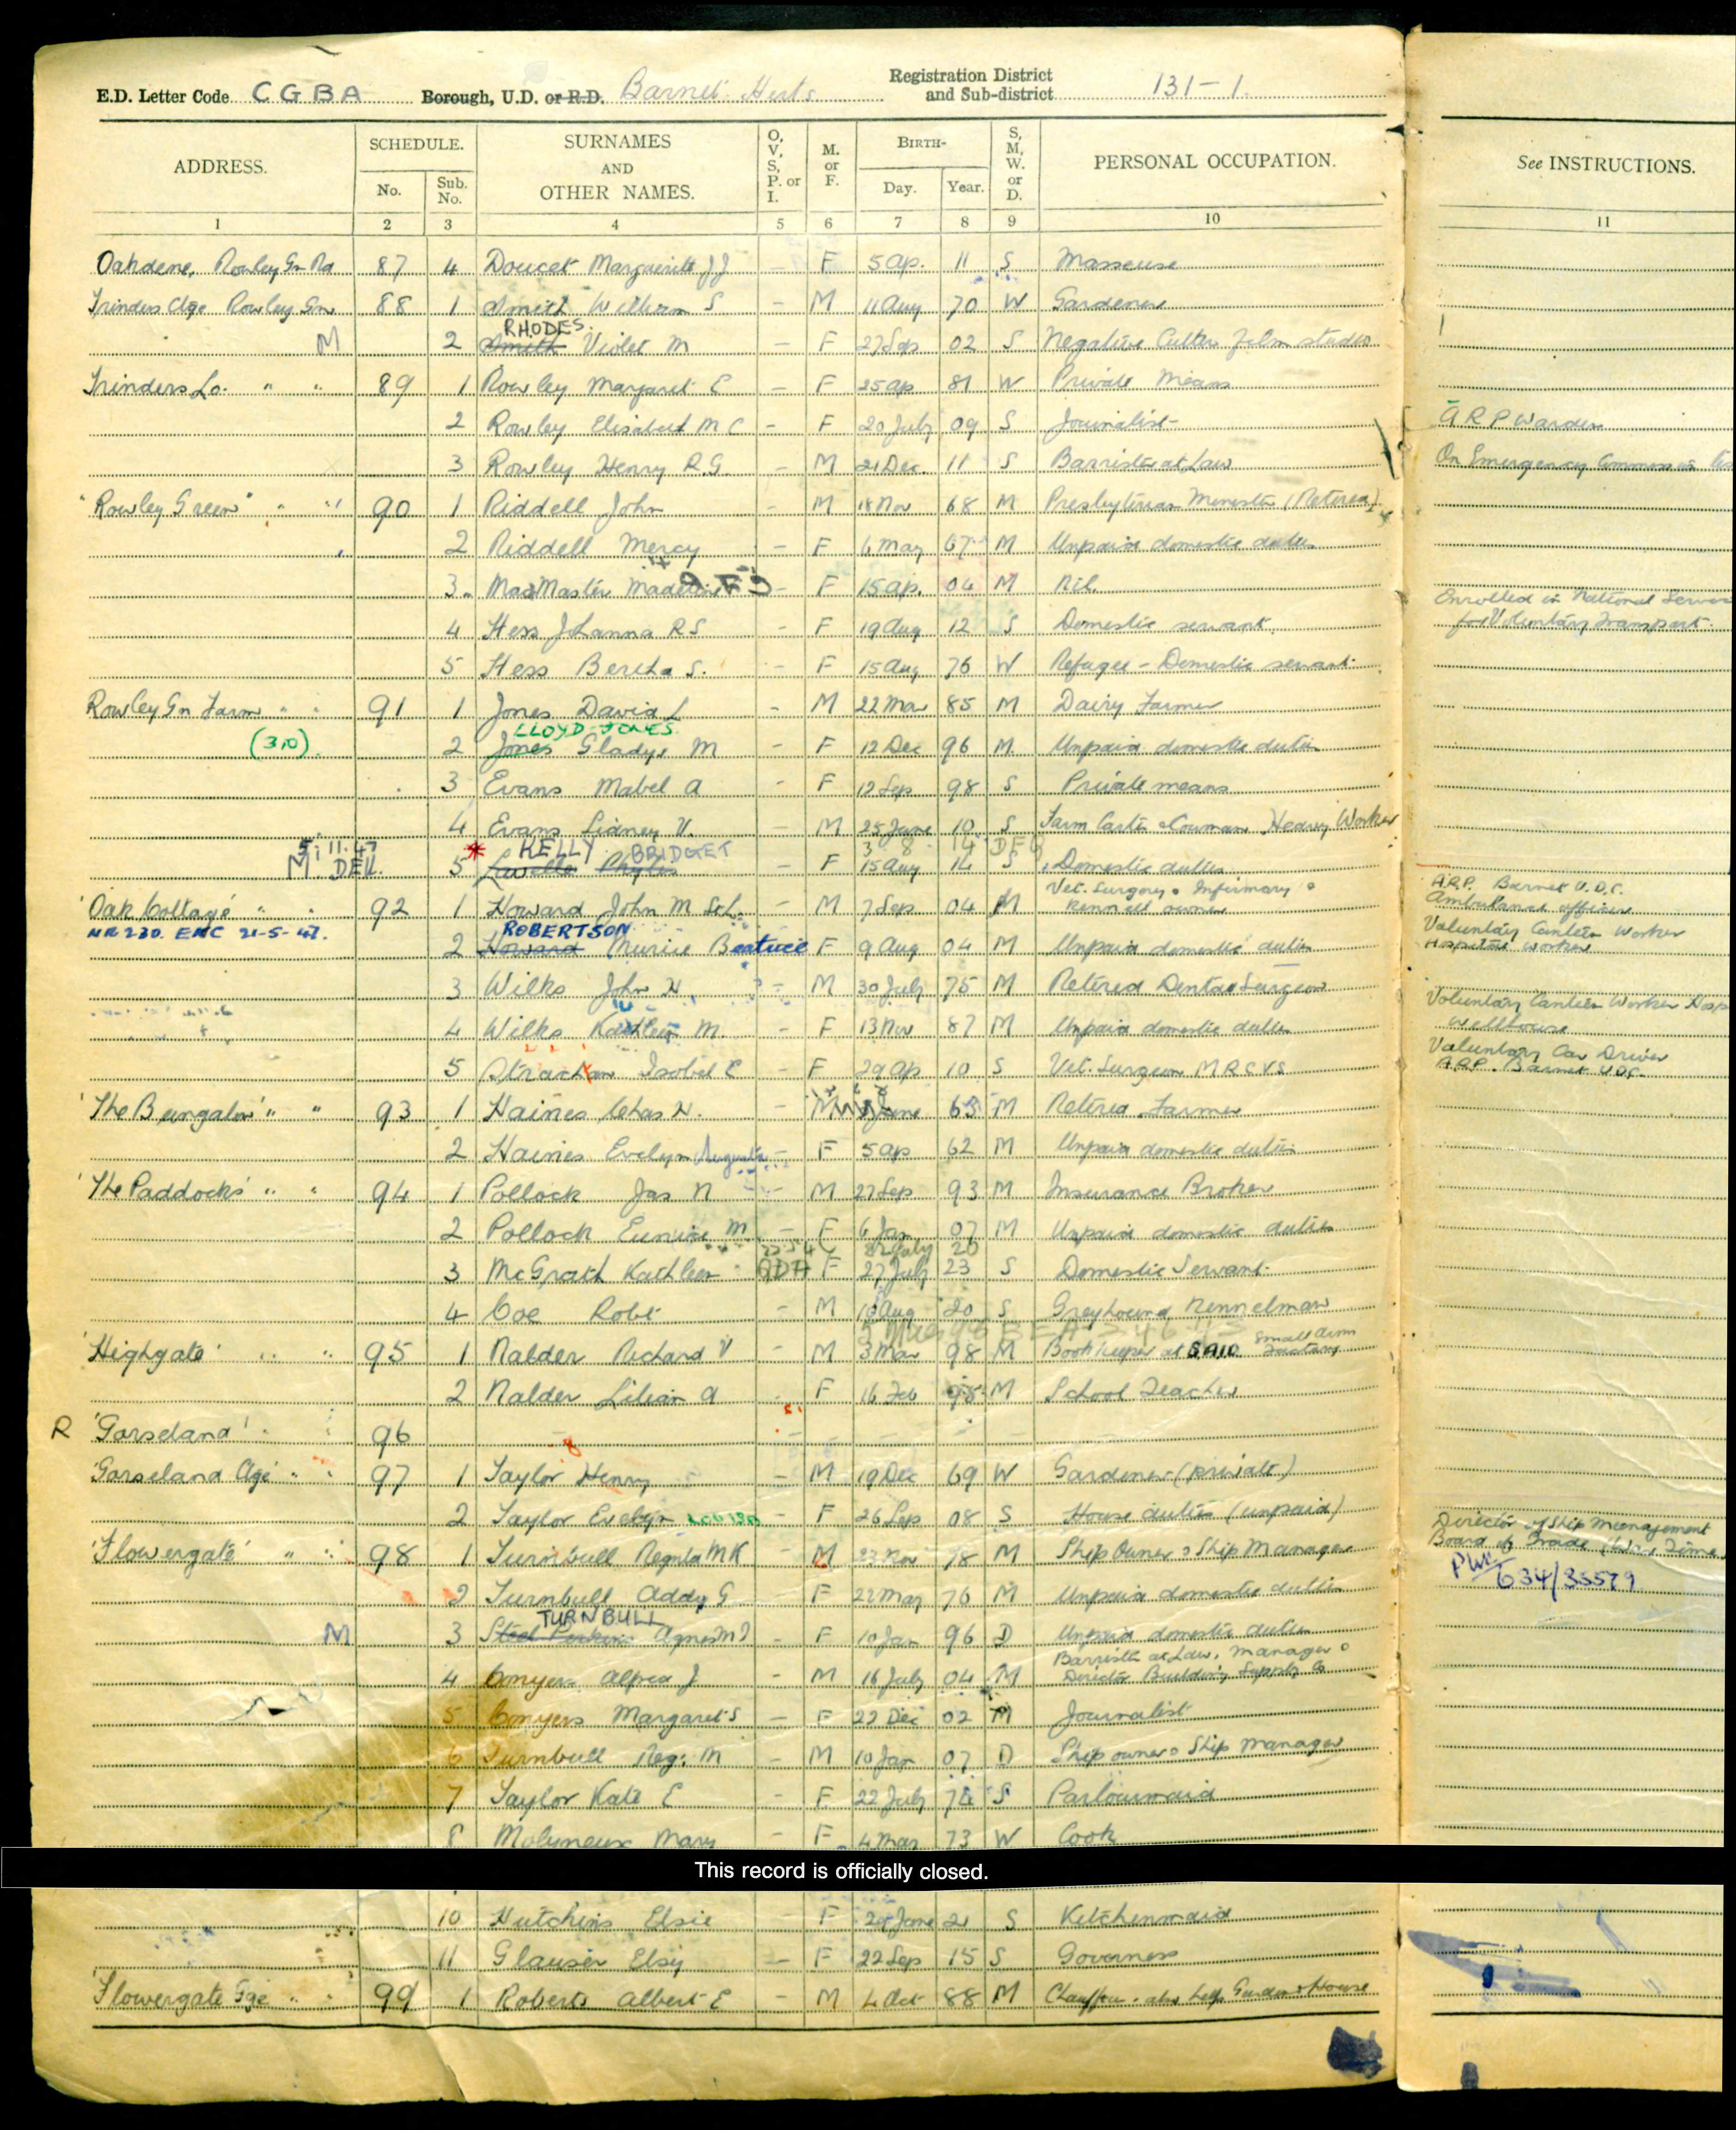 E.D. Letter Code CGBA Borough, U.D. or R.D. Barnet Herts Registration District and Sub-district 131-1
ADDRESS. SCHEDULE. No. Sub. No. SURNAMES AND OTHER NAMES. O, V, S, P. or I. M. or F. BIRTH- Day. Year. S, M, W. or D. PERSONAL OCCUPATION. See INSTRUCTIONS.
1 2 3 4 5 6 7 8 9 10 11
Oakdene, Rowley Gn Rd 87 4 Doucet Marguerite J J - F 5 Ap. 11 S Masseuse
Trinders Ctge Rowley Grn 88 1 Smith William S - M 11 Aug 70 W Gardener
RHODES.
M 2 Smith Violet M - F 27 Sep 02 S Negative Cutter Film studio
Trinders Lo. " " 89 1 Rowley Margaret E - F 25 Ap 81 W Private Means
2 Rowley Elisabeth M C - F 20 July 09 S Journalist A R P Warden
3 Rowley Henry R.G. - M 21 Dec. 11 S Barrister at Law On Emergency Commission
"Rowley Green" " " 90 1 Riddell John - M 18 Nov 68 M Presbyterian Minister (Retired)
2 Riddell Mercy - F 6 May 67 M Unpaid domestic duties
3 MacMaster - F 15 Ap. 04 M Nil. Enrolled in National Service
4 Hess Johanna R S - F 19 Aug 12 S Domestic servant for Voluntary Transport.
5 Hess Bertha S. - F 15 Aug 76 W Refugee - Domestic servant
Rowley Gn Farm " " 91 1 Jones David L - M 22 Mar 85 M Dairy Farmer
LLOYD-JONES
(310) 2 Jones Gladys M - F 12 Dec 96 M Unpaid domestic duties
3 Evans Mabel A - F 12 Sep 98 S Private means
4 Evans Sidney V. - M 25 June 10 S Farm Carter & Cowman Heavy Worker
5.11.47 KELLY BRIDGET 3 8 14 DEV
M. DEV. * 5 - F 15 Aug 14 S Domestic duties
Vet. Surgery & Infirmary & A.R.P. Barnet U.D.C.
'Oak Cottage' " " 92 1 Howard John M - M 7 Sep 04 M kennell owner Ambulance officer
NR230. EMC 21-5-47. ROBERTSON Voluntary Canteen Worker
2 Howard Beatrice F 9 Aug 04 M Unpaid domestic duties Hospital worker
3 Wilks John H - M 30 July 75 M Retired Dental Surgeon
Voluntary Canteen Worker Hosp
4 Wilks Kathleen M. - F 13 Nov 87 M Unpaid domestic duties Wellhouse
Voluntary Car Driver
5 Strachan Isobel E - F 29 Ap 10 S Vet. Surgeon M R C V S A.R.P. Barnet U.D.C.
'The Bungalow' " " 93 1 Haines Chas H. - M June 65 M Retired Farmer
2 Haines Evelyn Augusta - F 5 Ap 62 M Unpaid domestic duties
'The Paddocks' " " 94 1 Pollock Jas N - M 27 Sep 93 M Insurance Broker
2 Pollock Eunice M - F 6 Jan 07 M Unpaid domestic duties
July 20
3 McGrath Kathleen F 27 July 23 S Domestic Servant
4 Coe Robt - M 10 Aug 20 S Greyhound Kennelman
Small Arm
'Highgate' " " 95 1 Nalder Richard V - M 3 Mar 98 M Book keeper at Factory
2 Nalder Lilian A F 16 Feb 98 M School Teacher
R 'Gorseland' " 96 - - - - -
'Gorseland Ctge' " " 97 1 Taylor Henry - M 19 Dec 69 W Gardener (private)
2 Taylor Evelyn - F 26 Sep 08 S House duties (unpaid)
Director of Ship Management
'Flowergate' " " 98 1 Turnbull M K - M 23 Nov 78 M Ship Owner & Ship Manager Board of Trade (War Time)
634/33579
2 Turnbull Addy G - F 22 May 76 M Unpaid domestic duties
TURNBULL
M 3 Steel-Perkins Agnes M - F 10 Jan 96 D Unpaid domestic duties
Barrister at Law. Manager &
4 Conyers Alfred J - M 16 July 04 M Director Building Supply Co
5 Conyers Margaret S - F 22 Dec 02 M Journalist
6 Turnbull Reg. M - M 10 Jan 07 D Ship owner & Ship Manager
7 Taylor Kate E - F 22 July 78 S Parlourmaid
8 Molyneux Mary - F 4 Mar 73 W Cook
This record is officially closed.
10 Hutchins Elsie - F 29 June 21 S Kitchenmaid
11 Glauser Elsy - F 22 Sep 15 S Governess
'Flowergate " " 99 1 Roberts Albert E - M 4 Oct 88 M Chauffeur. also help Garden & House